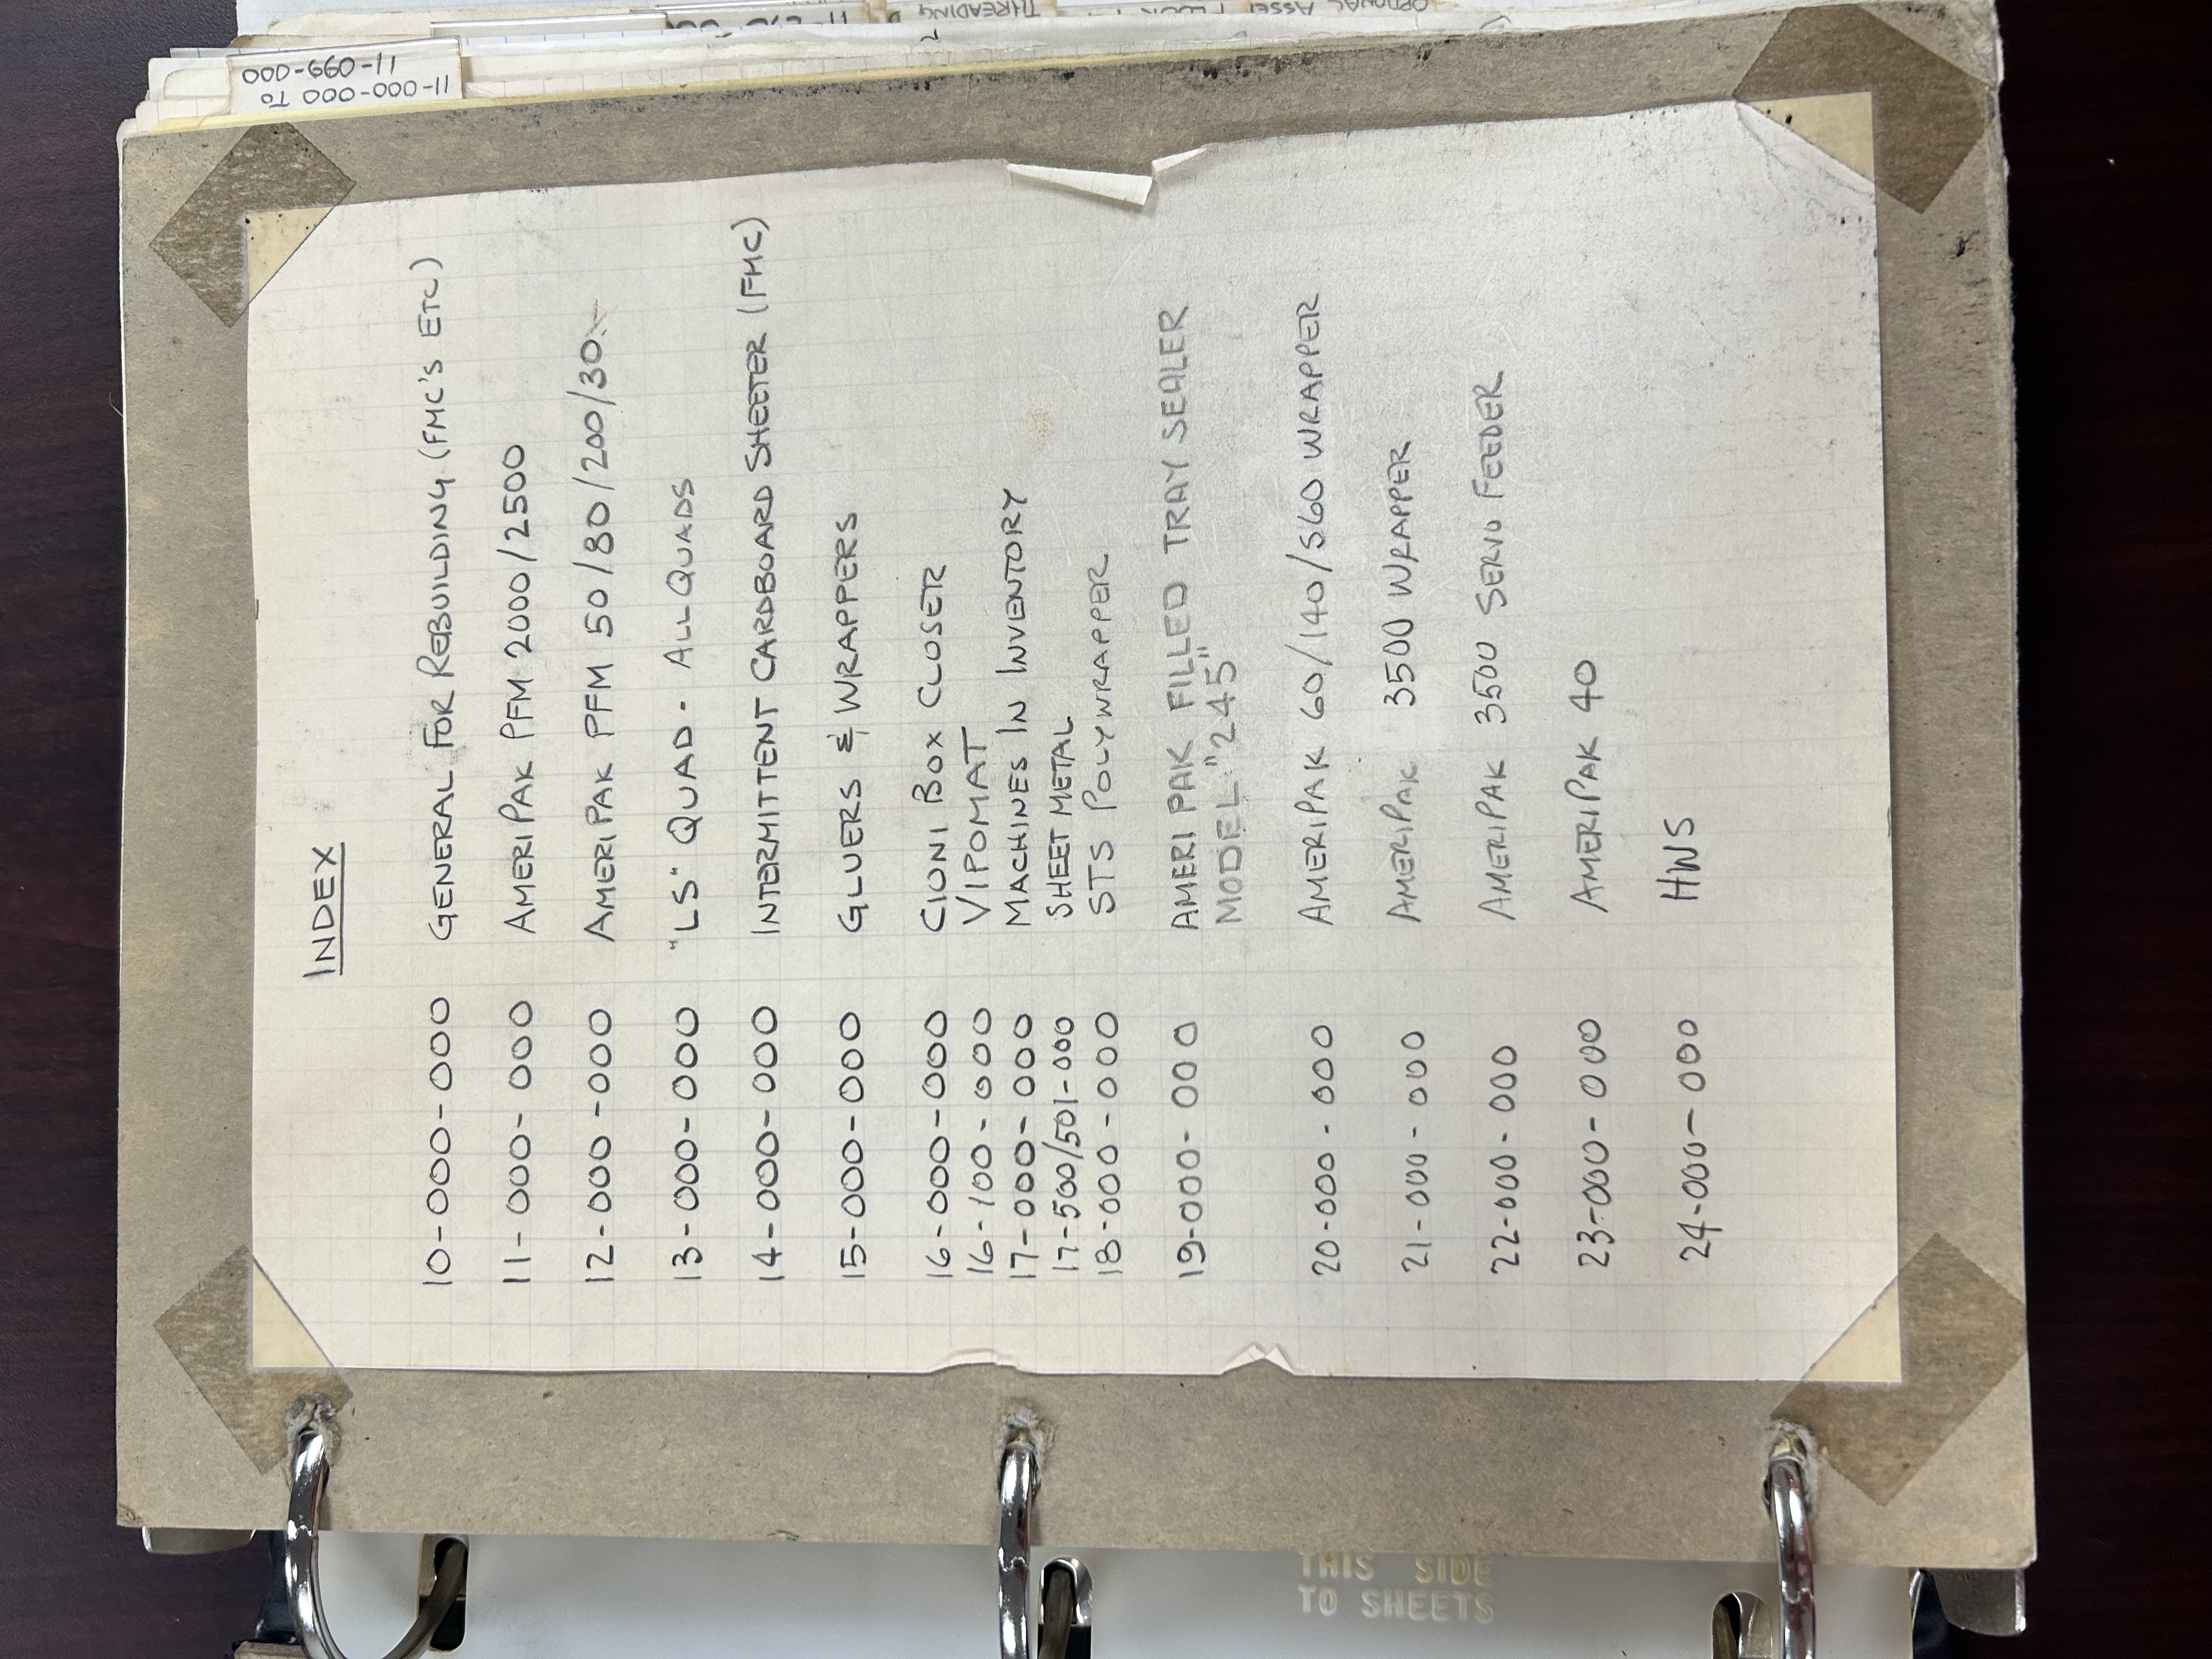 INDEX
10-000-000 GENERAL FOR REBUILDING (FMC'S ETC)
11-000-000 AMERIPAK PFM 2000/2500
12-000-000 AMERIPAK PFM 50/80/200/30
13-000-000 "LS" QUAD - ALL QUADS
14-000-000 INTERMITTENT CARDBOARD SHEETER (FMC)
15-000-000 GLUERS & WRAPPERS
16-000-000 CIONI BOX CLOSER
16-100-000 VIPOMAT
17-000-000 MACHINES IN INVENTORY
17-500/501-000 SHEET METAL
18-000-000 STS POLYWRAPPER
19-000-000 AMERI PAK FILLED TRAY SEALER
MODEL "245"
20-000-000 AMERIPAK 60/140/560 WRAPPER
21-000-000 AMERIPAK 3500 WRAPPER
22-000-000 AMERIPAK 3500 SERVO FEEDER
23-000-000 AMERIPAK 40
24-000-000 HWS
11-000-000 TO
11-099-000
THREADING
OPTIONAL ASSEM
THIS SIDE
TO SHEETS